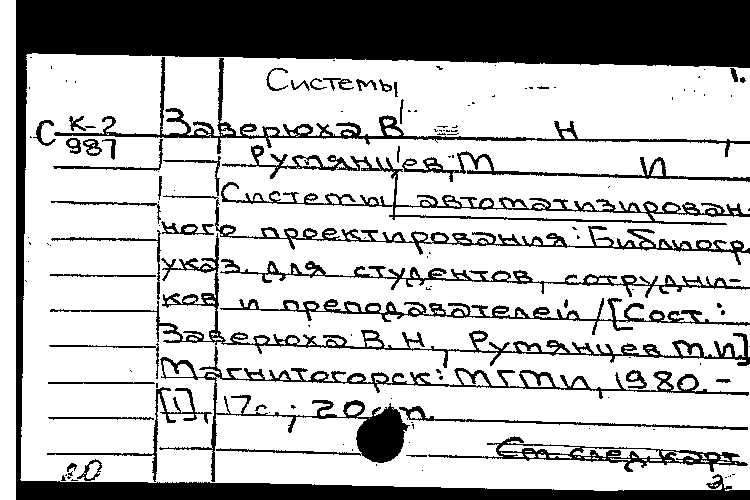 Системы 1.
С К-2 Заверюха, В Н
987
Румянцев, М И
Системы автоматизирован-
ного проектирования: Библиогр.
указ. для студентов, сотрудни-
ков и преподавателей /[Сост.:
Заверюха В. Н., Румянцев М.И]
Магнитогорск: МГМИ, 1980. -
[1], 17с.; 20 см.
См. след. карт.
20 2.